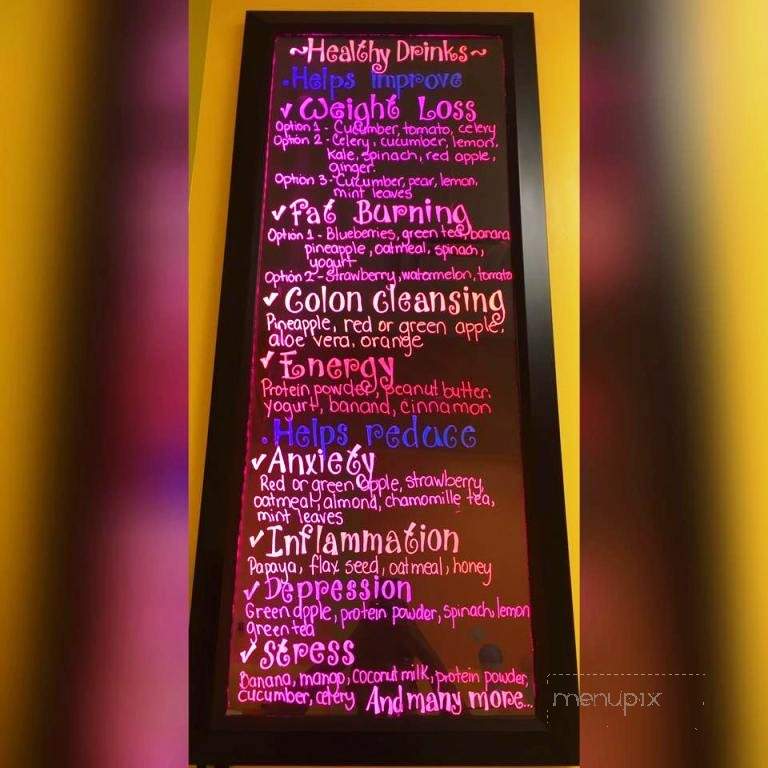 ~Healthy Drinks~
• Helps improve
✓ Weight Loss
Option 1 - Cucumber, tomato, celery
Option 2 - Celery, cucumber, lemon,
Kale, spinach, red apple,
ginger.
Option 3 - Cucumber, pear, lemon,
mint leaves
✓ Fat Burning
Option 1 - Blueberries, green tea, banana
pineapple, oatmeal, spinach,
yogurt
Option 2 - Strawberry, watermelon, tomato
✓ Colon cleansing
Pineapple, red or green apple,
aloe vera, orange
✓ Energy
Protein powder, peanut butter.
yogurt, banana, cinnamon
• Helps reduce
✓ Anxiety
Red or green apple, strawberry,
oatmeal, almond, chamomille tea,
mint leaves
✓ Inflammation
Papaya, flax seed, oatmeal, honey
✓ Depression
Green apple, protein powder, spinach, lemon
green tea
✓ Stress
Banana, mango, coconut milk, protein powder,
cucumber, celery And many more...
menupix